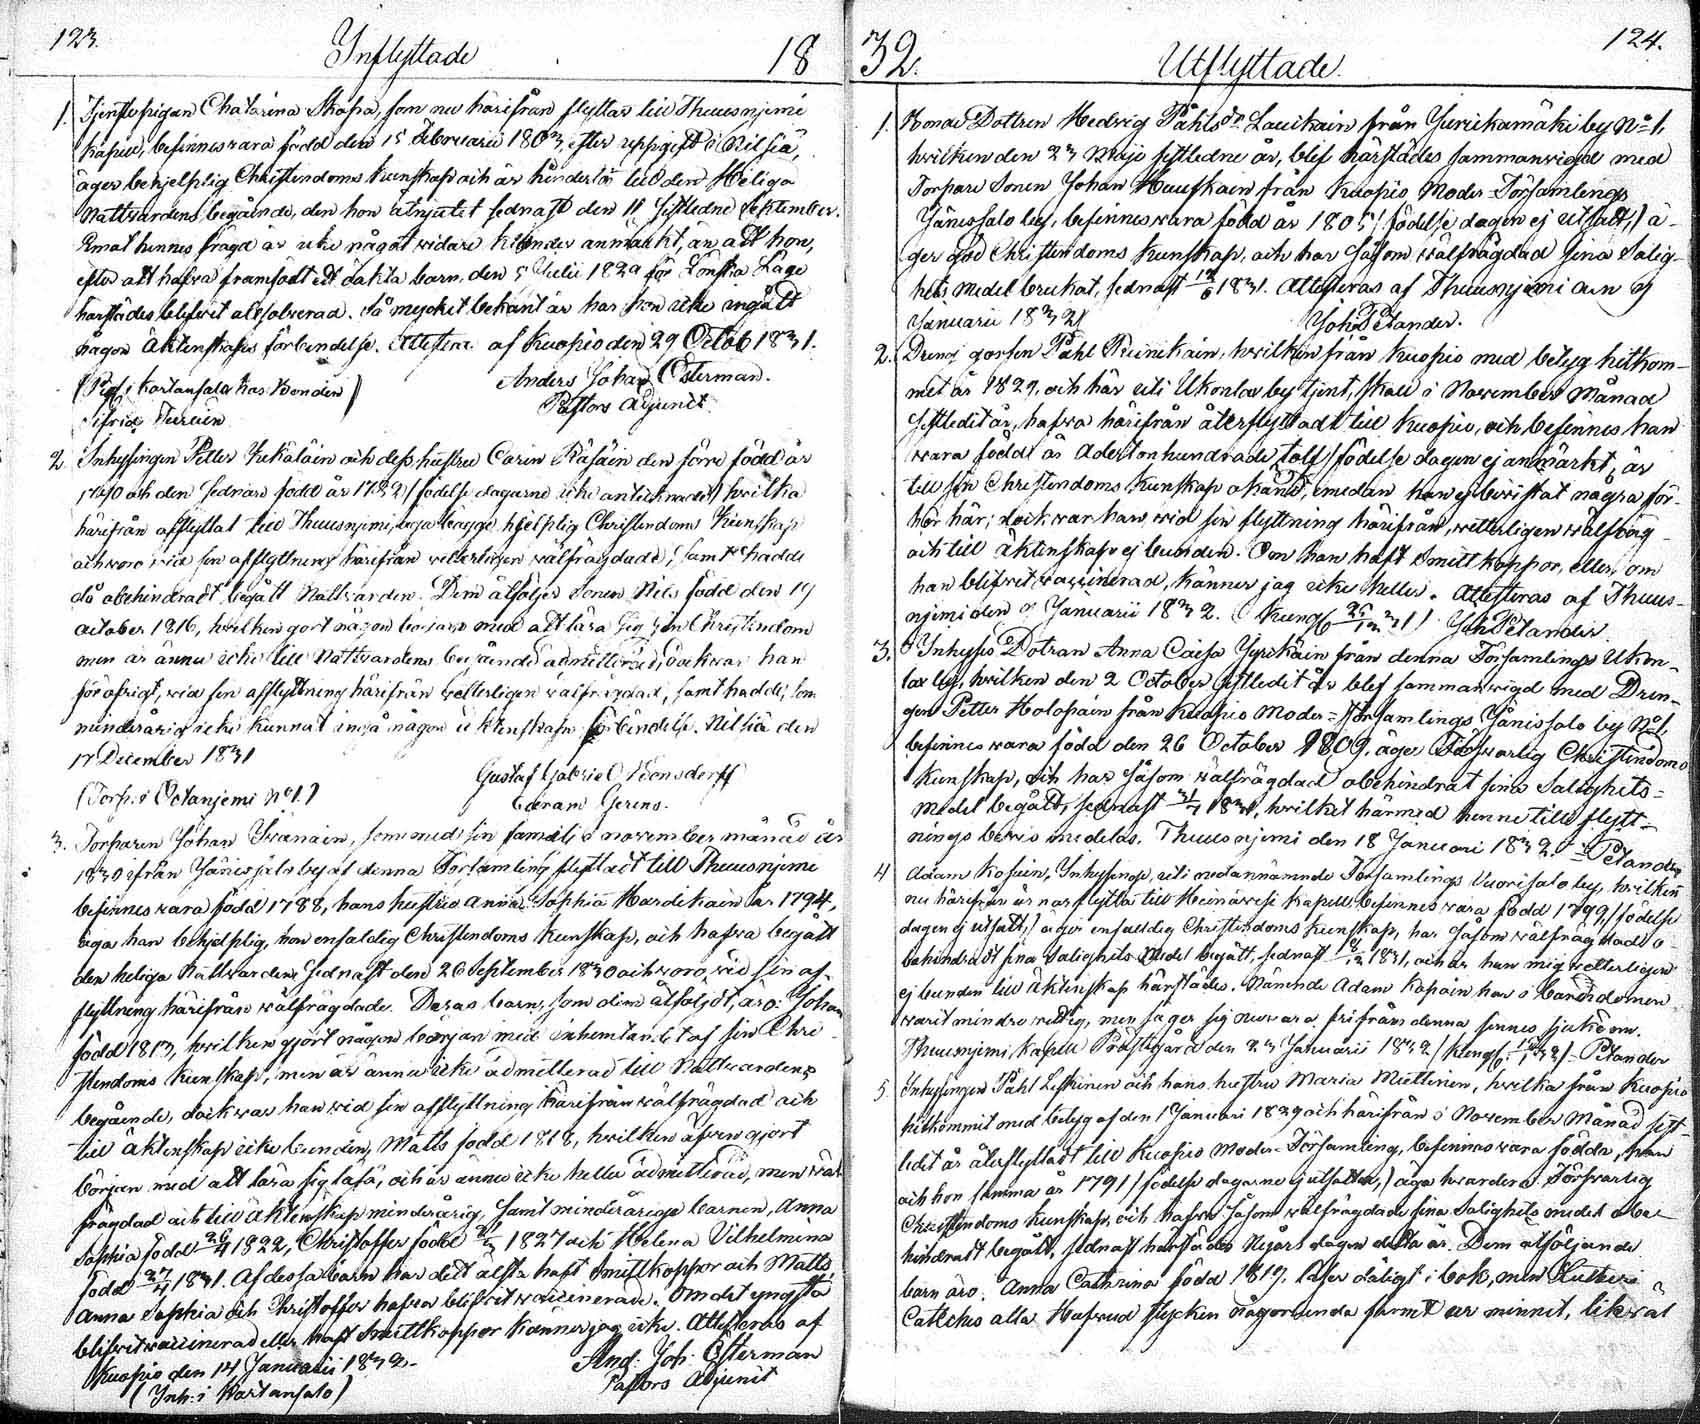 123.
Inflyttade
18
1. Tjenstepigan Chatarina Skopa, som nu härifrån flyttar till Thuusnjemi
Kapell, befinnes vara född den 15 Februarii 1803, efter uppgift i Nilsiä,
äger behjelplig Christendoms kunskap och är hindersfri till den Heliga
Nattvardens begående, den hon åtnjutit sednast den 11 sistledne September.
Emot hennes frägd är icke något vidare hinder anmärkt, än att hon,
efter att hafva framfödt ett oäkta barn, den 5 Julii 1829 för Lönska Läge
härstädes blifvit absolverad. Så mycket bekant är har hon icke ingått
någon Äktenskaps förbindelse. Attestera af Kuopio den 29 Octob 1831.
(Pig. i Kortansalo hos Bonden
Sifrid Turuin)
Anders Johan Österman.
Pastors Adjunct.
2. Inhysingen Petter Kekäläin och dess hustru Carin Räsäin den förre född år
1780 och den sednare född år 1782 (födelse dagarne icke antecknade) hvilka
härifrån afflyttat till Thuusnjemi, äga bägge hjelplig Christendoms Kunskap
och voro vid sin afflyttning härifrån vetterligen välfrägdade, samt hade
då obehindradt begått Nattvarden. Dem åtföljer Sonen Nils född den 19
october 1816, hvilken gort någon början med att lära sig sin Christendom
men är ännu icke till Nattvardens begående admitterad, dock var han
för öfrigt, vid sin afflyttning härifrån vetterligen välfrägdad, samt hade, som
minderårig icke kunnat ingå någon äktenskaps förbindelse. Nilsiä den
17 December 1831
(Torp. i Octanjemi No 1.)
Gustaf Gabriel
Coeram Gerens.
3. Torparen Johan Ikänäin, som med sin familj i november månad år
1830 ifrån Jänissalo by af denna Församling flyttat till Thuusnjemi
befinnes vara född 1788, hans hustru Anna Sophia Hardikain år 1794,
äga han behjelplig, hon enfaldig Christendoms Kunskap, och hafva begått
den heliga Nattvarden sednast den 26 September 1830 och voro vid sin af-
flyttning härifrån välfrägdade. Deras barn, som dem åtföljdt, äro: Johan
född 1813, hvilken gjort någon början med inhemtandet af sin Chri-
stendoms Kunskap, men är ännu icke admitterad till Nattvardens
begående, dock var han vid sin afflyttning härifrån välfrägdad och
till äktenskap icke bunden, Matts född 1818, hvilken äfven gjort
början med att lära sig läsa, och är ännu icke heller admitterad, men väl-
frägdad och till äktenskap minderårig, samt minderåriga barnen, Anna
Sophia född 26/4 1822, Christoffer född 21/3 1827 och Helena Vilhelmina
född 27/4 1831. Af dessa barn har det älsta haft Smittkoppor och Matts
Anna Sophia och Christoffer hafva blifvit vaccinerade. Om det yngsta
blifvit vaccinerad eller haft Smittkoppor känner jag icke. Attesteras af
Kuopio den 14 Januarii 1832.
(Inh: i Kortansalo)
And: Joh: Österman
Pastors Adjunct
32.
Utflyttade.
124.
1. Bonde Dottren Hedvig Påhlsdr Laukain från Juurikamäki by No 1,
hvilken den 23 Maji sistledne år, blef härstädes sammanvigd med
Torpare Sonen Johan Huuskain från Kuopio Moder Församlings
Jänissalo by, befinnes vara född år 1805 (födelse dagen ej utsatt,) ä-
ger god Christendoms Kunskap, och har såsom välfrägdad sina Salig-
hets Medel brukat, sednast 12/6 1831. Attesteras af Thuusnjemi den 9
Januarii 1832)
Joh: Petander.
2. Dreng gossen Påhl Ruinikain, hvilken från Kuopio med betyg hitkom-
mit år 1829, och här uti Ukonlax by tjent, skall i November Månad
sistledit år, hafva härifrån återflyttadt till Kuopio, och befinnes han
vara född år Adertonhundrade tolf (födelse dagen ej anmärkt, är
till sin Christendoms Kunskap okänd, emedan han ej bevistat några för-
hör här; dock var han, vid sin flyttning härifrån, vetterligen välfräg-
och till äktenskap ej bunden. Om han haft Smittkoppor, eller om
han blifvit vaccinerad, känner jag icke heller. Attesteras af Thuus-
njemi den 9 Januarii 1832. Joh: Petander.
3. Inhyses Dotran Anna Caisa Hyvikäin från denna Församlings Ukon-
lax by, hvilken den 2 October sistledit år blef sammanvigd med Dren-
gen Petter Holopain från Kuopio Moder=Församlings Jänissalo by No 1,
befinnes vara född den 26 October 1809, äger Försvarlig Christendoms
Kunskap, och har såsom välfrägdad obehindrat sina Salighets=
Medel begått, sednast 31/7 1831, hvilket härmed henne till flytt-
nings bevis medelas. Thuusnjemi den 18 Januari 1832. Petander
4 Adam Kosuin, Inhysinge, uti nedannämnde Församlings Vuorisalo by, hvilken
nu härifrån ärnar flytta till Heinävesi Kapell, befinnes vara född 1799 (födelse
dagen ej utsatt,) äger enfaldig Christendoms Kunskap, har såsom välfrägdad o-
behindradt sina Salighets Medel begått, sednast 1831, och är han mig vetterligen
ej bunden till Äktenskap härstädes. Nämnde Adam Kosuin har i barndomen
varit mindre vettig, men säger sig nu vara fri från denna sinnes sjukdom.
Thuusnjemi Kapell Prästgård den 23 Januarii 1832 = Petander
5 Inhysingen Påhl Leskinen och hans hustru Maria Miettinen, hvilka från Kuopio
hitkommit med betyg af den 1 Januari 1829 och härifrån i November Månad sist-
ledit år återflyttadt till Kuopio Moder=Församling, befinnes vara födda, han
och hon samma år 1791 (födelse dagarne ej utsatta,) äga hvardera Försvarlig
Christendoms Kunskap, och hafva såsom välfrägdade sina Salighets medel obe-
hindradt begått, sednast härstädes Nyårs dagen detta år. Dem åtföljande
barn äro: Anna Cathrina född 1817, läser dåligt i bok, men Lutheri
Catechis alla Hufvud stycken någorlunda samt ur minnet, likväl